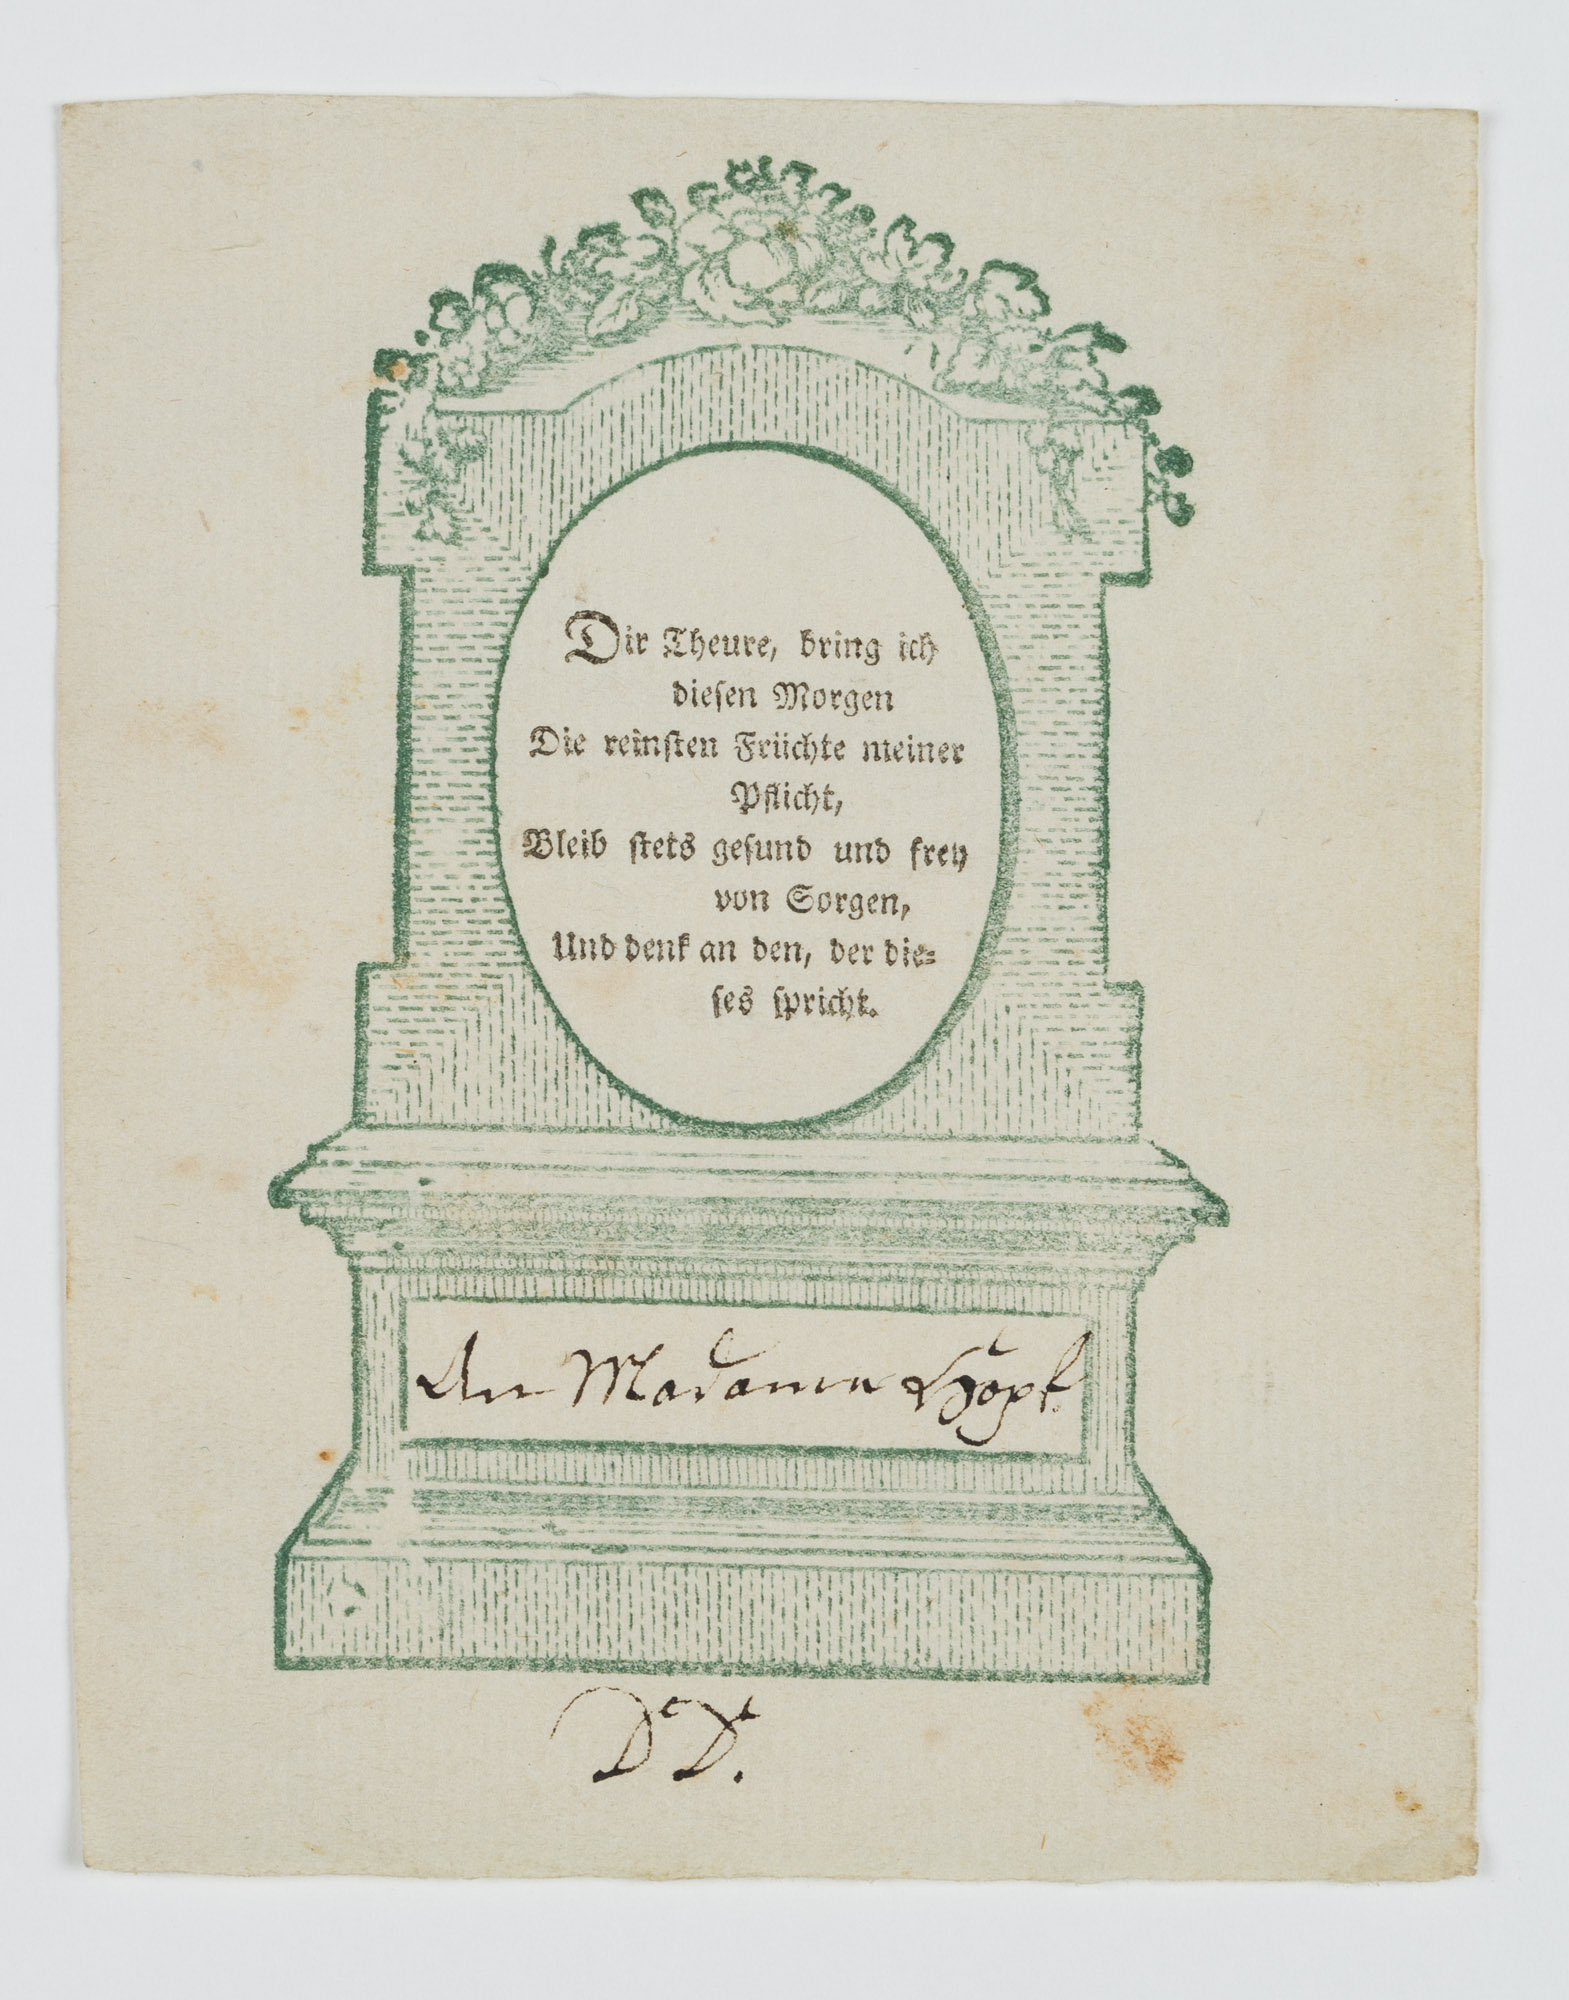 Dir Theure, bring ich
dieſen Morgen
Die reinſten Früchte meiner
Pflicht,
Bleib ſtets geſund und frey
von Sorgen,
Und denk an den, der die⸗
ſes ſpricht.
An Madame Hopf.
D D.